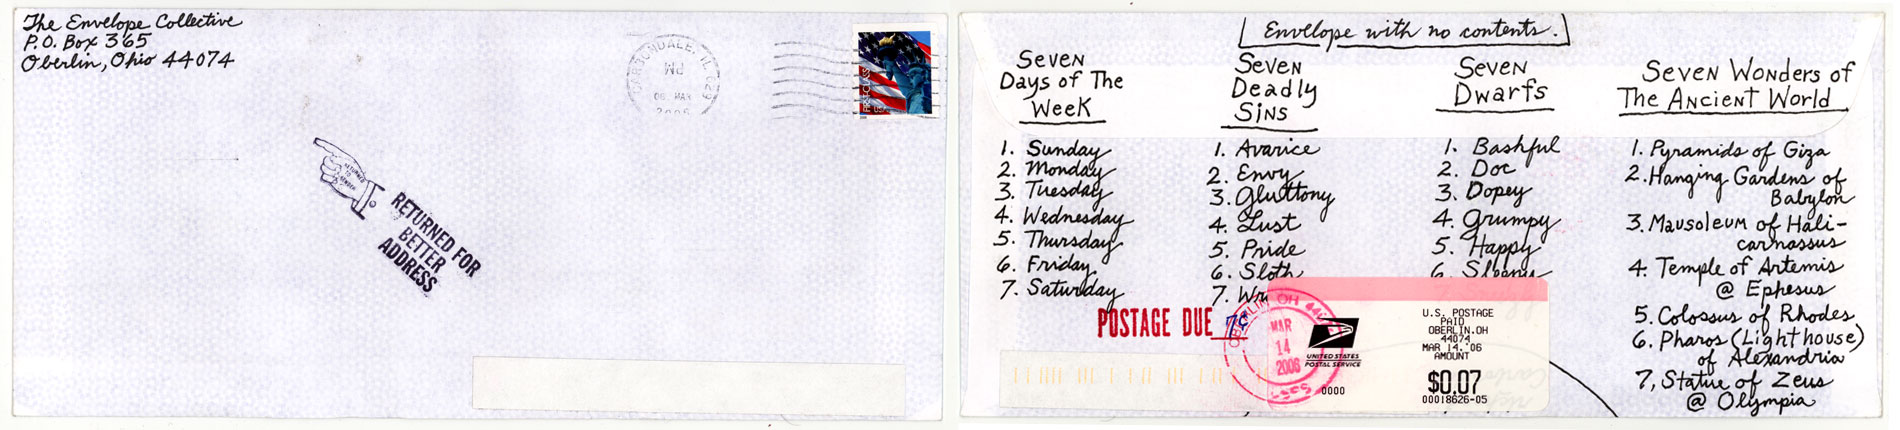 The Envelope Collective
P.O. Box 365
Oberlin, Ohio 44074
CARBONDALE, IL 629
PM
06 MAR
2006
USA
RETURNED
TO
SENDER
RETURNED FOR
BETTER
ADDRESS
Envelope with no contents.
Seven
Days of The
Week
1. Sunday
2. Monday
3. Tuesday
4. Wednesday
5. Thursday
6. Friday
7. Saturday
Seven
Deadly
Sins
1. Avarice
2. Envy
3. Gluttony
4. Lust
5. Pride
6. Sloth
7. Wr
Seven
Dwarfs
1. Bashful
2. Doc
3. Dopey
4. Grumpy
5. Happy
6. Sleepy
7.
Seven Wonders of
The Ancient World
1. Pyramids of Giza
2. Hanging Gardens of
Babylon
3. Mausoleum of Hali-
carnassus
4. Temple of Artemis
@ Ephesus
5. Colossus of Rhodes
6. Pharos (Lighthouse)
of Alexandria
7, Statue of Zeus
@ Olympia
POSTAGE DUE 7¢
OBERLIN, OH 44074
MAR
14
2006
USPS
UNITED STATES
POSTAL SERVICE
0000
U.S. POSTAGE
PAID
OBERLIN.OH
44074
MAR 14.'06
AMOUNT
$0.07
00018626-05